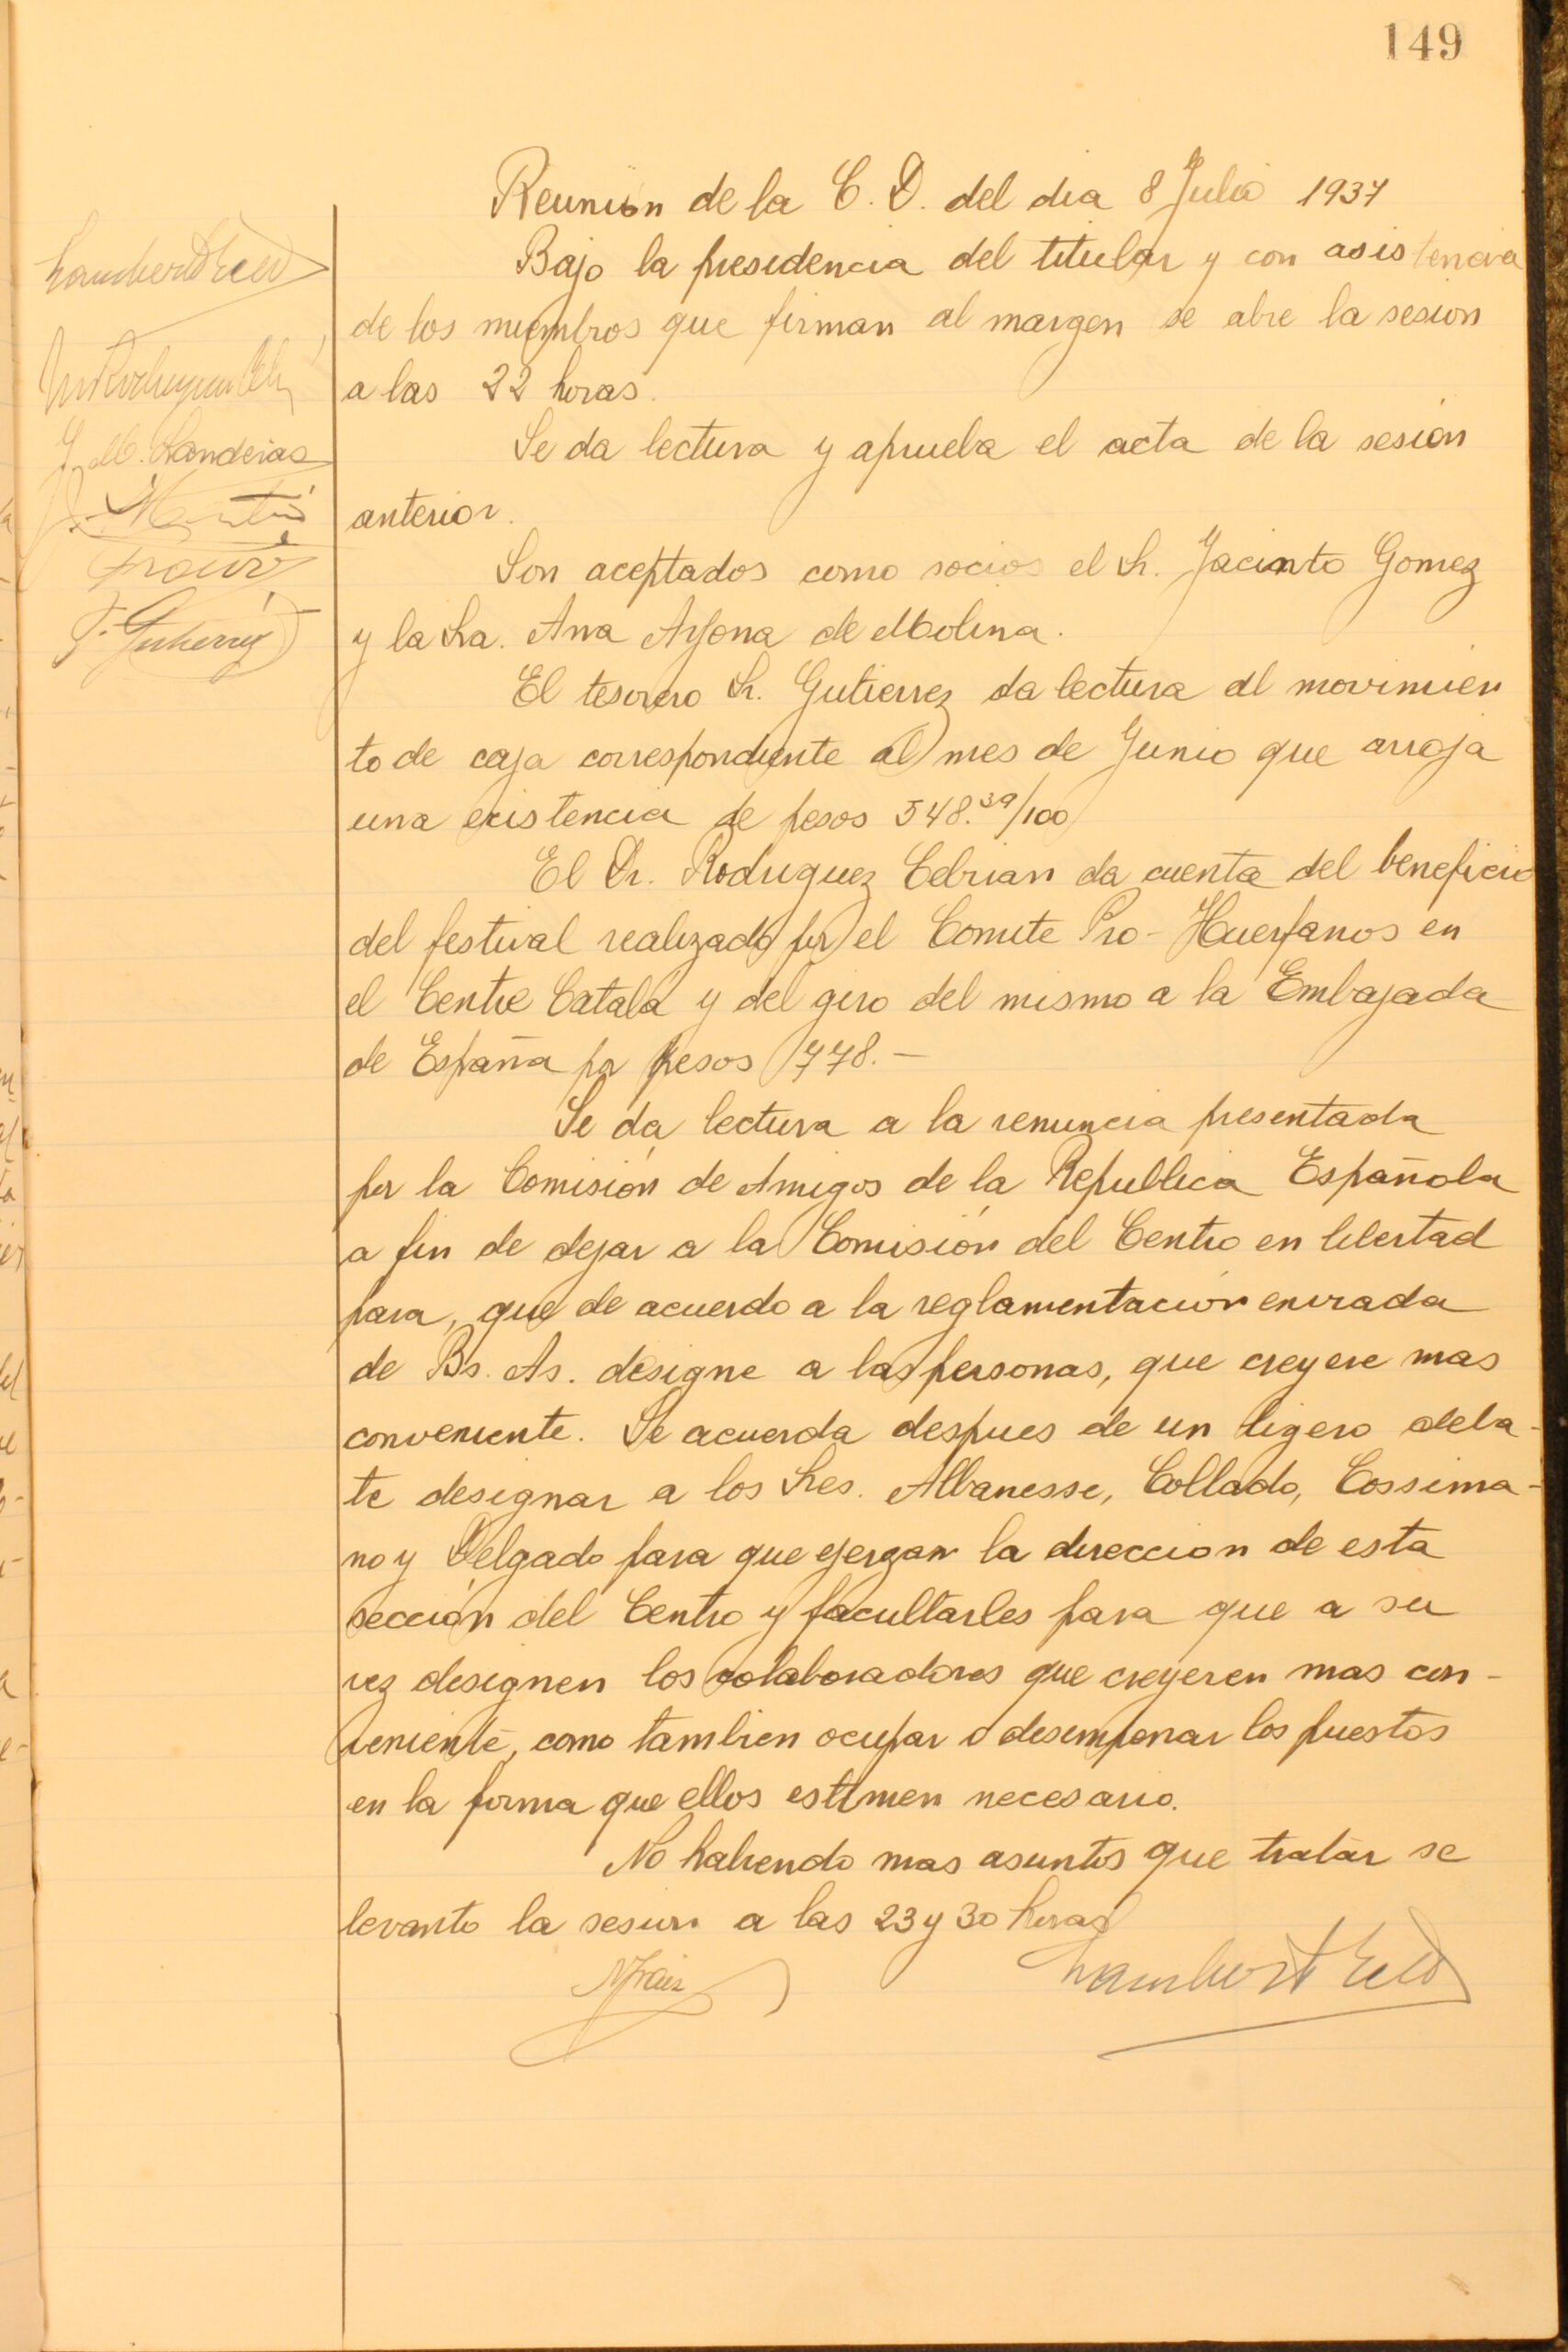 149
Reunión de la C. D. del dia 8 Julio 1937
Bajo la presidencia del titular y con asistencia
de los miembros que firman al margen se abre la sesion
a las 22 horas.
Se da lectura y aprueba el acta de la sesión
anterior.
Son aceptados como socios el Sr. Jacinto Gomez
y la Sra. Ana Arjona de Molina.
El tesorero Sr. Gutierrez da lectura al movimien
to de caja correspondiente al mes de Junio que arroja
una existencia de pesos 548.39/100
El Dr. Rodriguez Cebrian da cuenta del beneficio
del festival realizado por el Comite Pro-Huerfanos en
el Centre Catalá y del giro del mismo a la Embajada
de España por pesos 778.-
Se da lectura a la renuncia presentada
por la Comisión de Amigos de la Republica Española
a fin de dejar a la Comisión del Centro en libertad
para, que de acuerdo a la reglamentación enviada
de Bs. As. designe a las personas, que creyere mas
conveniente. Se acuerda despues de un ligero deba-
te designar a los Sres. Albanesse, Collado, Cossima-
no y Delgado para que ejerzan la direccion de esta
sección del Centro y facultarles para que a su
vez designen los colaboradores que creyeren mas con-
veniente, como tambien ocupar o desempenar los puestos
en la forma que ellos estimen necesario.
No habiendo mas asuntos que tratar se
levanto la sesion a las 23 y 30 horas
J. M. Landeiras
F. Gutierrez